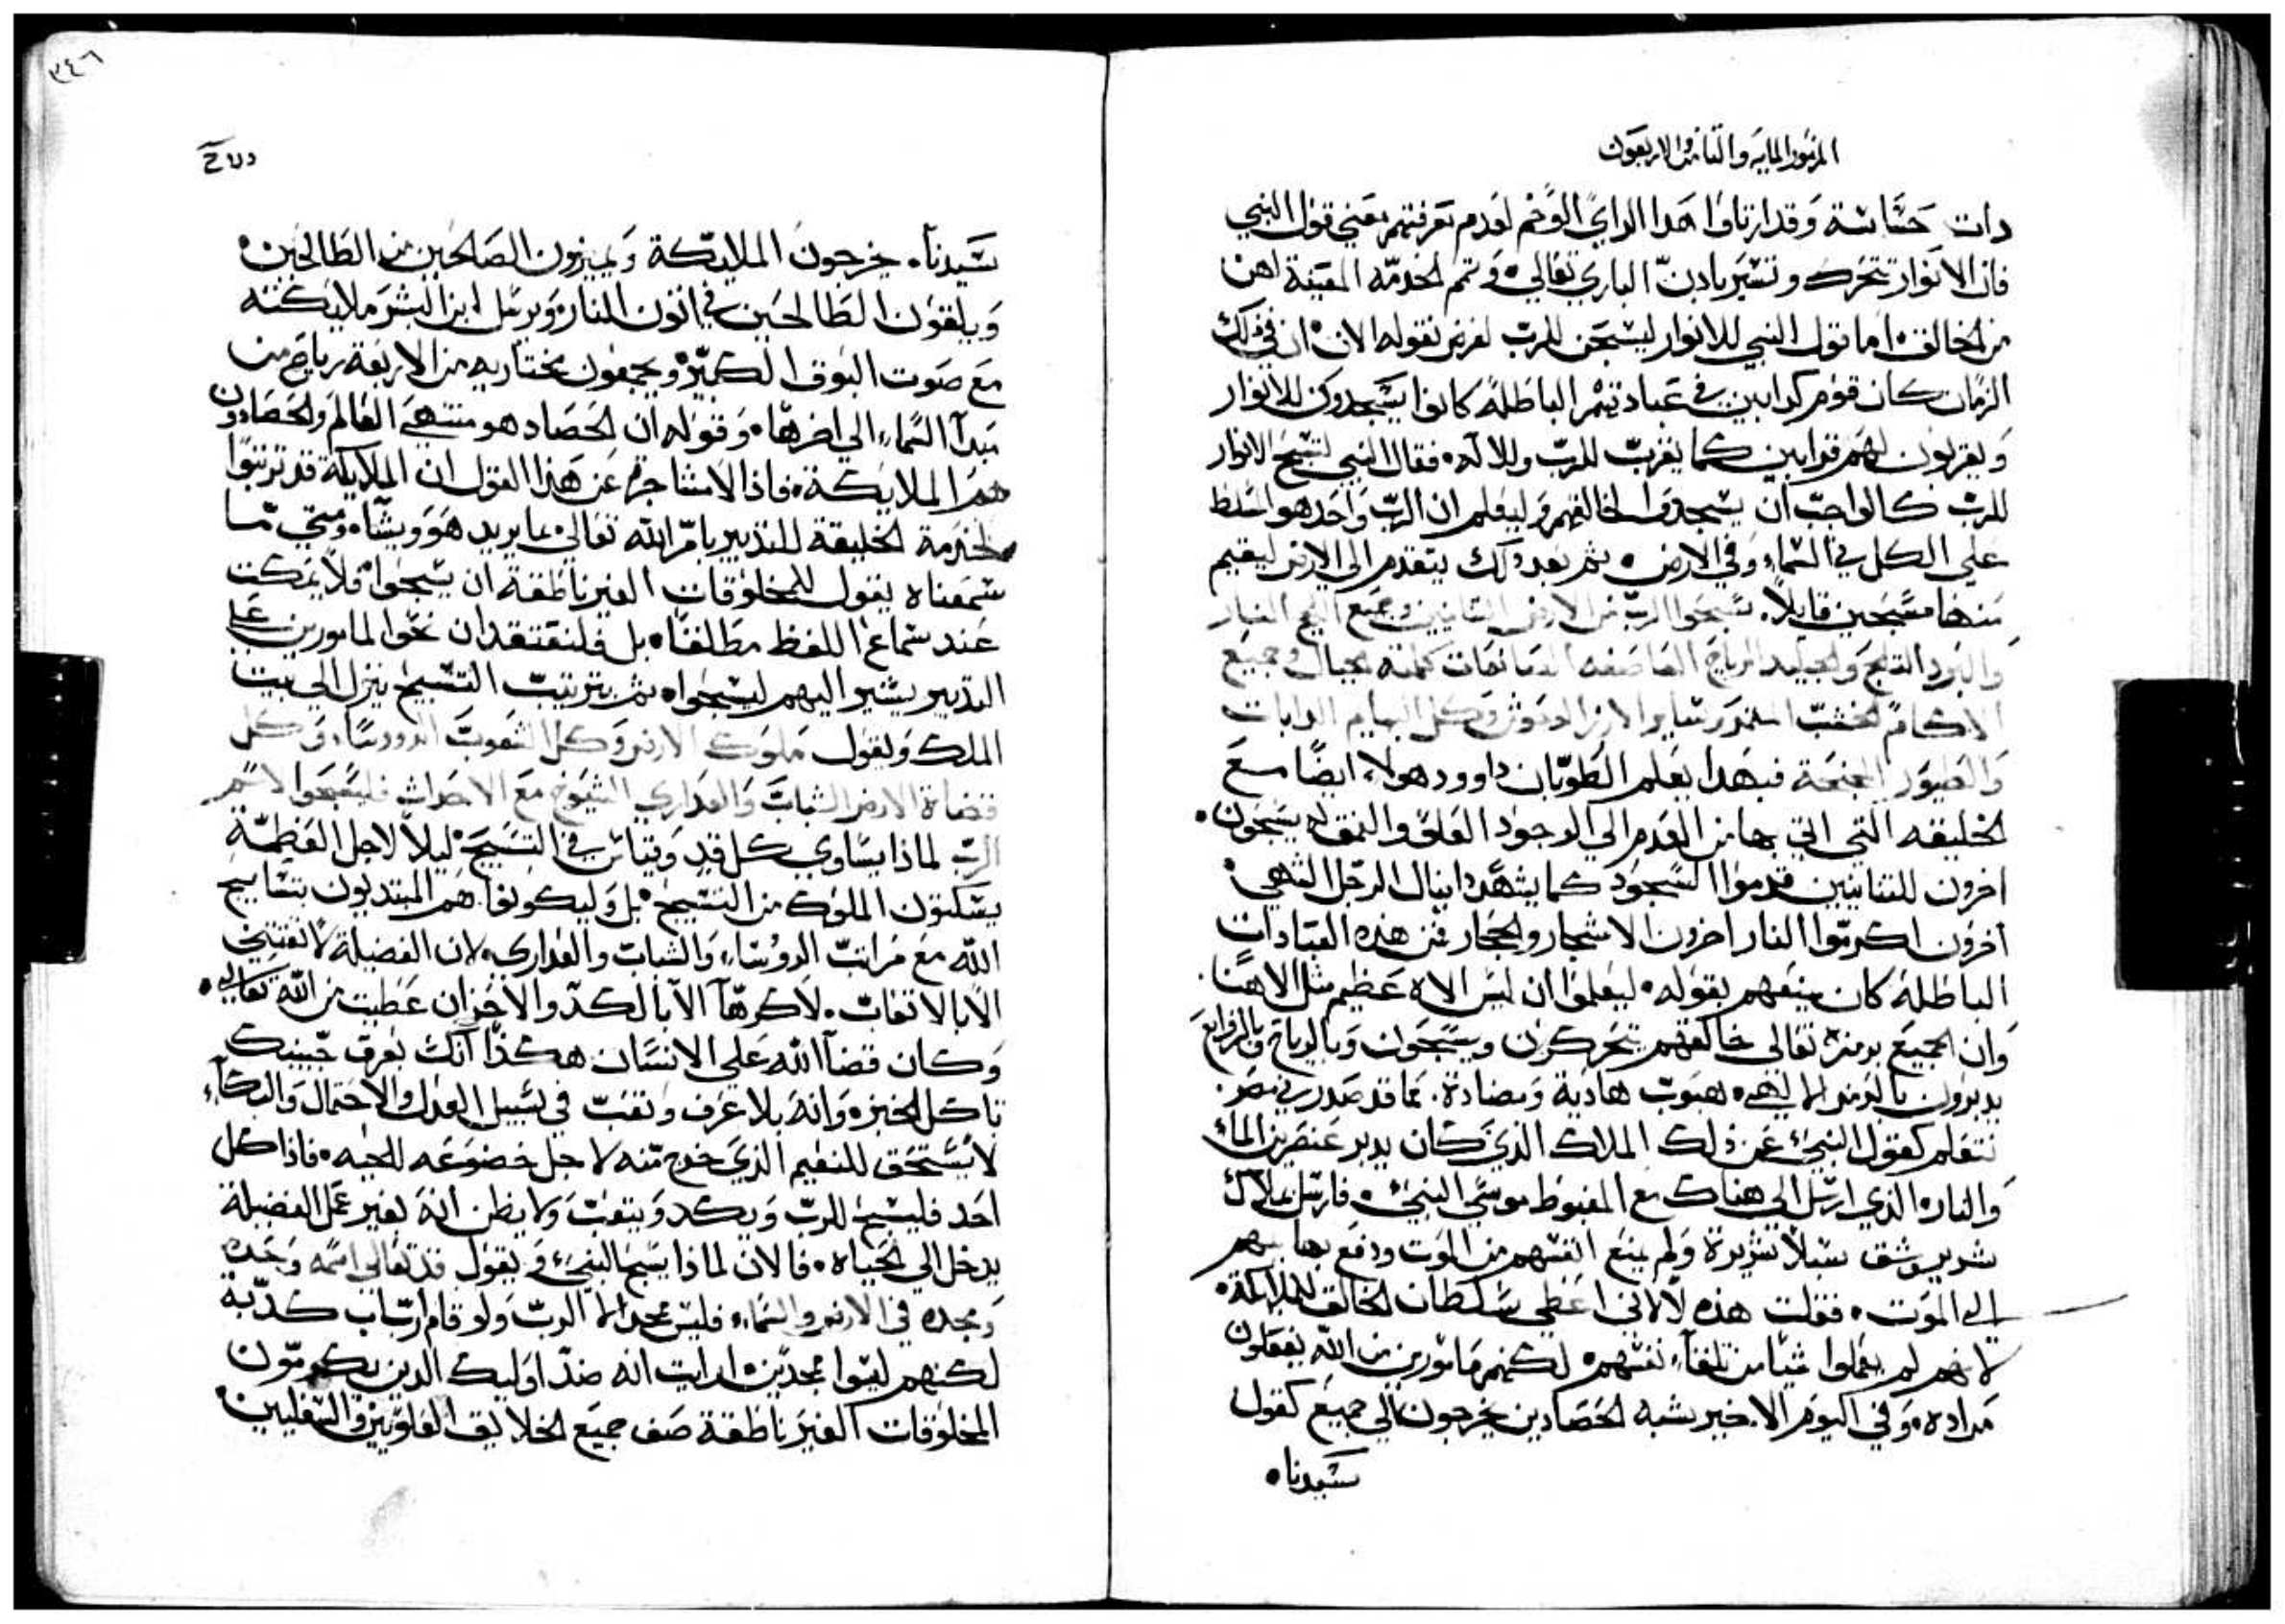 المزمور المايه والتامن والاربعون
دات حساسة وقد ارتاوا هدا الراي الوخم لعدم معرفتهم معني قول النبي
فان الانوار تتحرك وتسير بادن الباري تعالي وتتم الخدمه المعينة لهن
من الخالق اما قول النبي للانوار ليسبحن للرب لغرض نقوله الان ان في دلك
الزمان كان قوم كدابين في عبادتهم الباطلة كانوا يسجدون للانوار
ويقربون لهم قرابين كما يقرب للرب وللاله فقال النبي لتسبح الانوار
للرب كالواجب ان يسجدوا لخالقهم وليعلم ان الرب واحد هو المسلط
علي الكل في السماء وفي الارض ثم بعد دلك يتقدم الي الارض ليقيم
منها مسبحين قايلا سبحوا الرب من الارض التنانين وجميع اللجج النار
والبرد الثلج والجليد الرياح العاصفه الصانعات كلمته الجبال وجميع
الاكام الخشب المثمر وساير الارز الوحوش وكل البهايم الدابات
والطيور المجنحة فبهدا يعلم الطوبان داوود هولاء ايضا مع
الخليقه التي اتي بها من العدم الي الوجود العلو والعمق له يسبحون
اخرون للتنانين قدموا السجود كما يشهد دانيال الرجل الشهي
اخرون اكرموا النار اخرون الاشجار والحجار فمن هذه العبادات
الباطلة كان يمنعهم بقوله ليعلموا ان ليس الاه عظيم مثل الاهنا
وان الجميع برمزه تعالي خالقهم يتحركون ويسبحون وبالرياح وبالزوابع
يدبرون بالرمز الالهي هبوب هادية ومضادة مما قد صدر في مصر
نتعلم كقول النبي عن ذلك الملاك الذي كان يدبر عنصرين الماء
والنار الذي ارسل الي هناك مع المغبوط موسي النبي فارسل ملاك
شرير وشق سبلا شريرة ولم يمنع انفسهم من الموت ودفع بهايمهم
الي الموت فقلت هذه لا لاني اعطي سلطان الخالق للملايكة
لانهم لم يعملوا شيا من تلقاء نفسهم لكنهم مامورين من الله يفعلون
مراده وفي اليوم الاخير بشبه الحصادين يخرجون الي جميع كقول
سيدنا
٣٤٦
سيدنا يخرجون الملايكة ويميزون الصالحين من الطالحين
ويلقون الطالحين في اتون النار ويرسل ابن البشر ملايكته
مع صوت البوق الكبير ويجمعون مختاريه من الاربعة رياح من
مبدا السماء الي اخرها وقوله ان الحصاد هو منتهي العالم والحصادون
هم الملايكة فاذا لا مشاجرة عن هذا القول ان الملايكة قد ترتبوا
لخدمة الخليقة للتدبير بامر الله تعالي عما يريد هو ويشاء ومتي ما
سمعناه يقول للمخلوقات الغير ناطقة ان يسبحوا فلا نمكث
عند سماع اللفظ مطلقا بل فلنعتقد ان نحو المامورين علي
التدبير يشير اليهم ليسبحوا ثم بترتيب التسبيح ينزل الي بيت
الملك ويقول ملوك الارض وكل الشعوب الروسا وكل
قضاة الارض الشباب والعداري الشيوخ مع الاحداث فليسبحوا لاسم
الرب لماذا يساوي كل قد وقياس في التسبيح ليلا لاجل العظمة
يسكتون الملوك من التسبيح بل وليكونوا هم المبتديون بتسابيح
الله مع مراتب الروساء والشباب والعداري لان الفضيلة لا تقتني
الا بالاتعاب لا كرها الا بالكد والاحزان عطيت من الله تعالي
وكان قضا الله علي الانسان هكذا انك بعرق جبينك
تاكل الخبز وانه بلا عرف وتعب في سبيل العدل والاحتمال والبكاء
لا يستحق للنعيم الذي خرج منه لاجل خضوعه للحيه فاذا كل
احد فليسبح للرب ويكد ويتعب ولا يظن انه بغير عمل الفضيلة
يدخل الي الحياه فالان لماذا يسبح النبي ويقول قد تعالي اسمه وحده
ومجده في الارض والسماء فليس مجد الا الرب ولو قام ارباب كدبة
لكنهم ليسوا ممجدين ارايت انه ضد اوليك الدين يكرمون
المخلوقات الغير ناطقة صف جميع الخلايق العلويين والسفليين